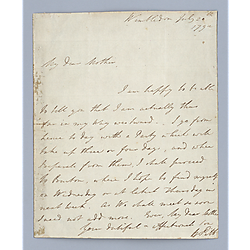 Wimbledon July 20th
179
My Dear Mother
I am happy to be able
to tell you that I am actually thus
far in my Way westward. I go from
hence to day with a Party which will
take up three or four days, and when
I separate from them, I shall proceed
to Burton, where I hope to find myself
on Wednesday or at latest Thursday in
next week. As We shall meet so soon
I need not add more. Ever, My Dear Mother
Your dutiful & affectionate
W. Pitt